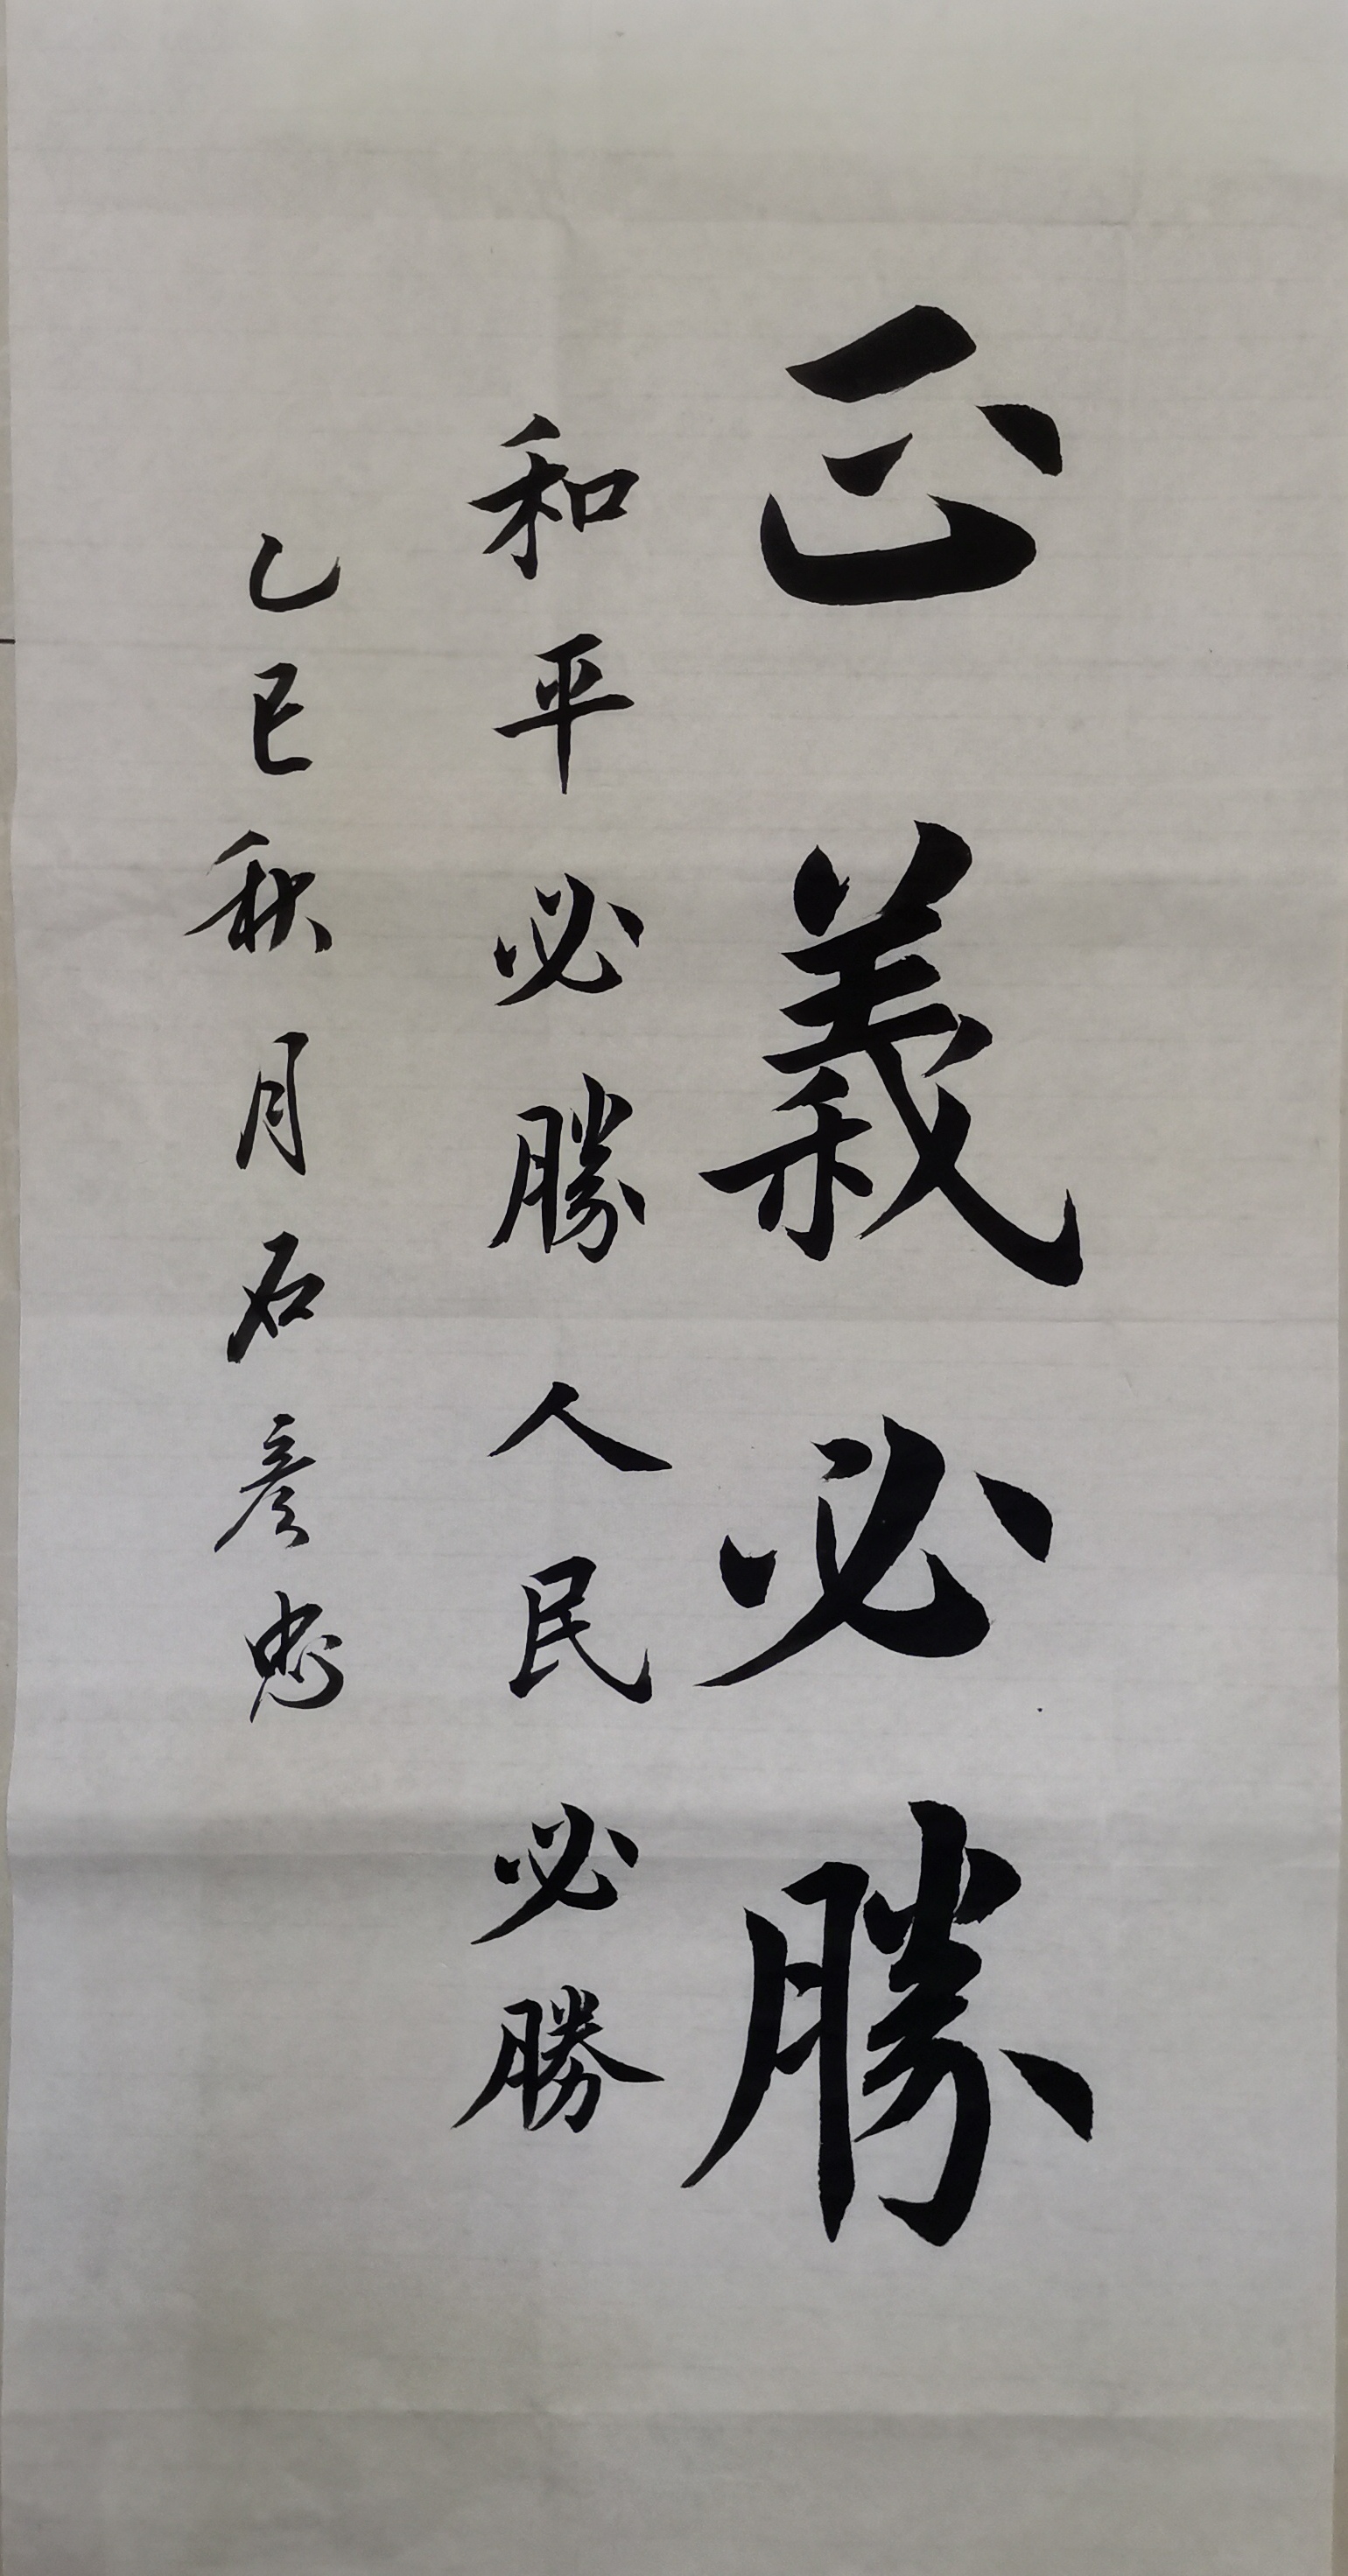 正義必勝
和平必勝人民必勝
乙巳秋月石彦忠